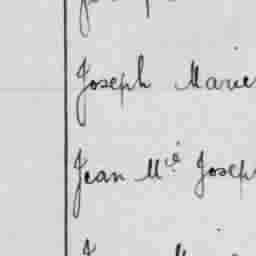 Joseph Marie
Jean Mie Joseph